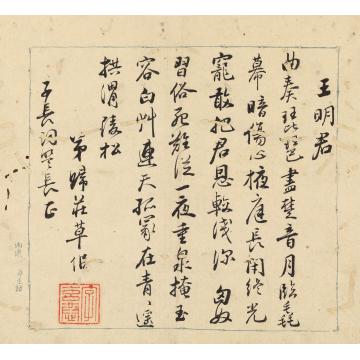 王明君
曲奏琵琶盡楚音月臨毳
幕暗傷心掖庭長閉終光
寵敢把君恩較淺深 匈奴
習俗死難從一夜重泉掩玉
容白艸連天孤冢在青〻遥
拱渭陵松
弟歸莊草作
子長詞
長正